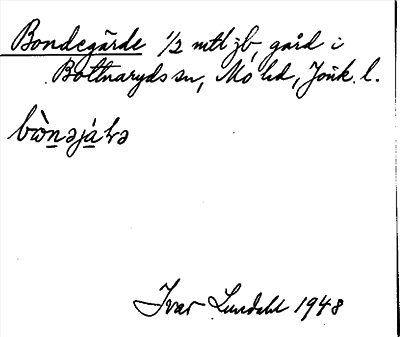 Bondegärde 1/2 mtl jb, gård i
Bottnaryds sn, Mo hd, Jönk. l.
bẁnəjáɬə
Ivar Lundahl 1948